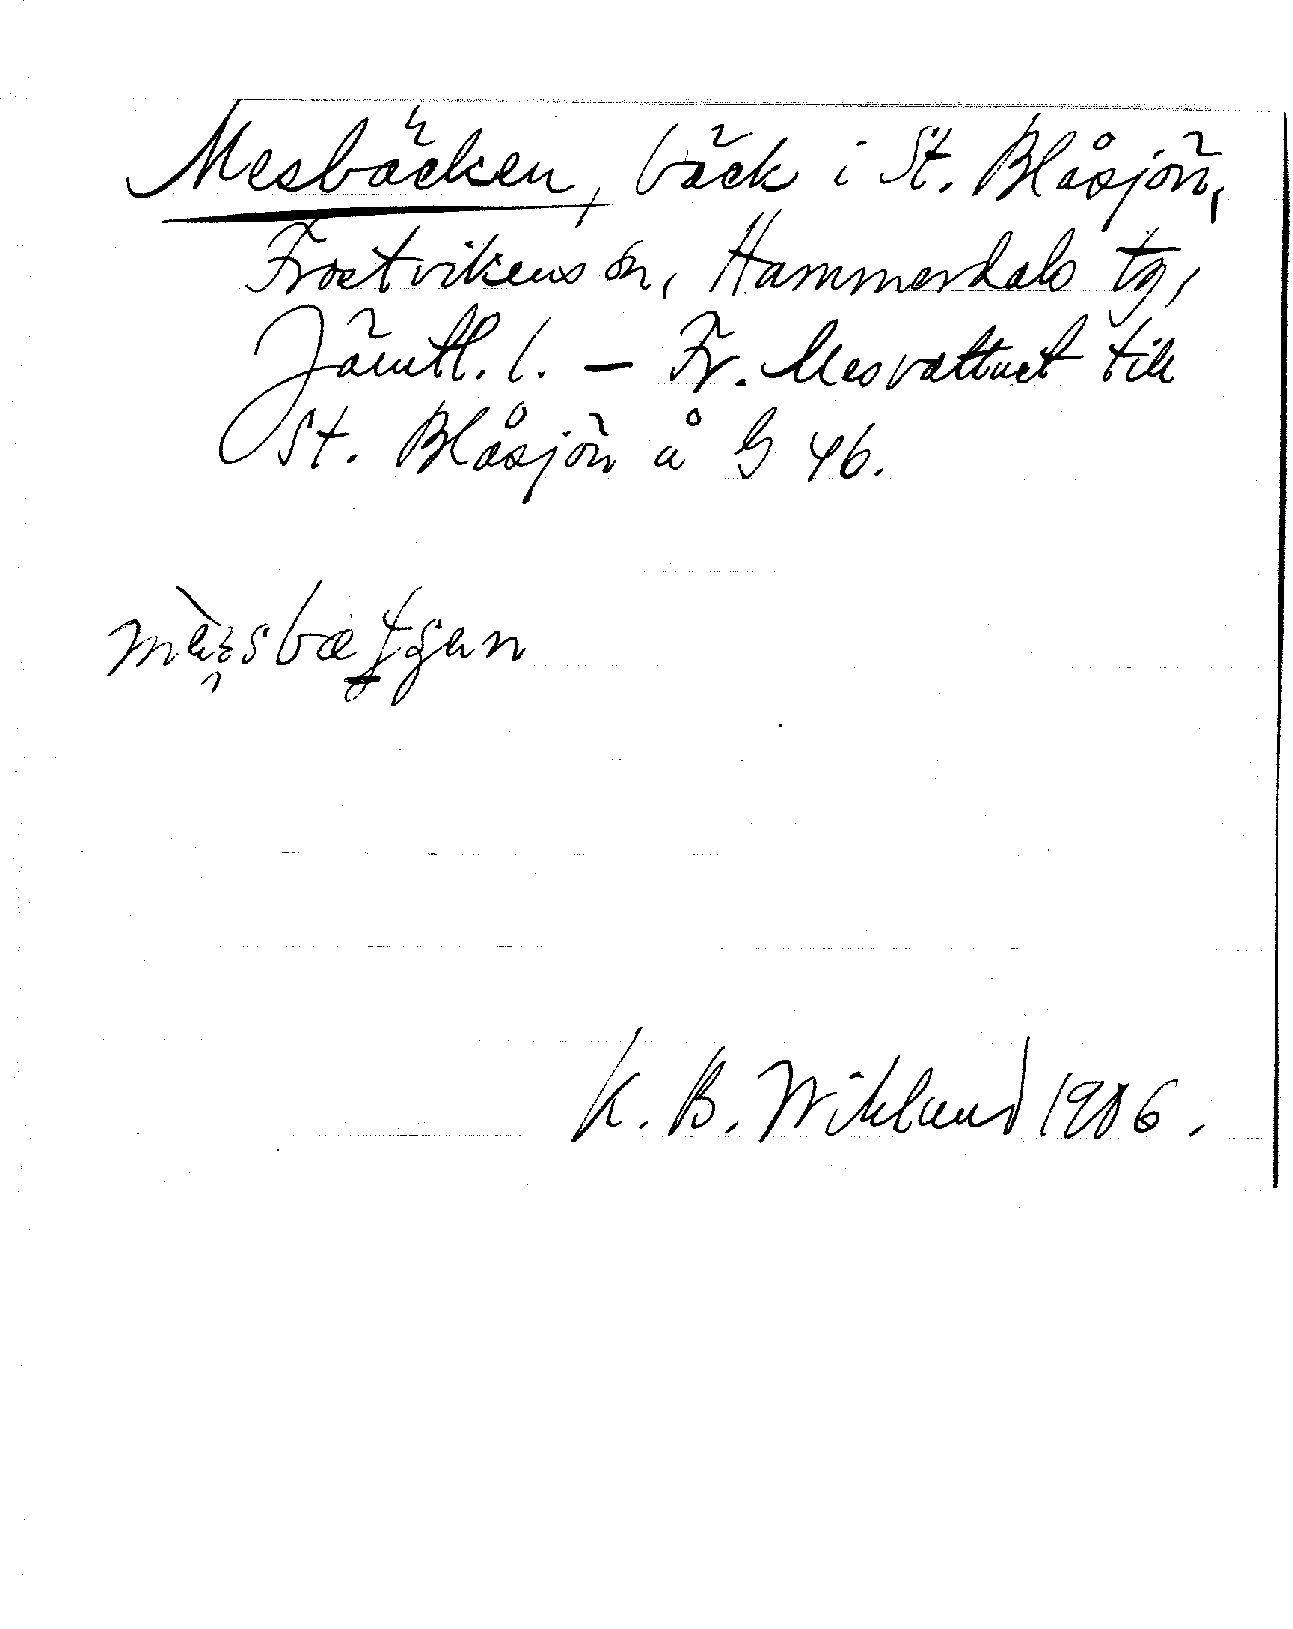 Mesbäcken, bäck i St. Blåsjön,
Frostvikens sn, Hammerdals tg,
Jämtl. l. – Fr. Mesvattnet till
St. Blåsjön å G 46.
K. B. Wiklund 1906.